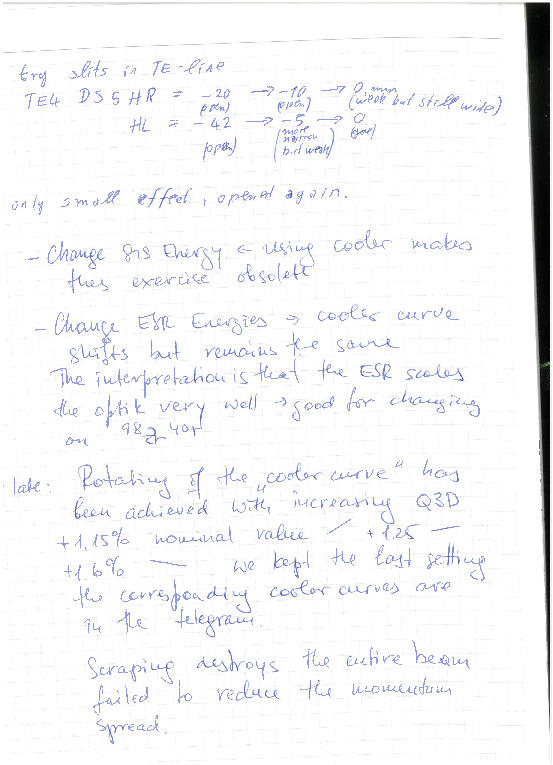 try slits in TE-line
TE4 DS5 HR = -20 → -10 → 0 mm
(open) (open) (weak but still wide)
HL = -42 → -5 → 0
(open) (more narrow but weak) (gone)
only small effect, opened again.
- Change SIS Energy ← using cooler makes
this exercise obsolete
- Change ESR Energies → cooler curve
shifts but remains the same
The interpretation is that the ESR scales
the optik very well → good for changing
on 98Zr 40+
late: Rotating of the „cooler curve" has
been achieved with increasing Q3D
+1,15% nominal value / +1.25 —
+1.6% — we kept the last setting
the corresponding cooler curves are
in the telegram.
Scraping destroys the entire beam
failed to reduce the momentum
spread.